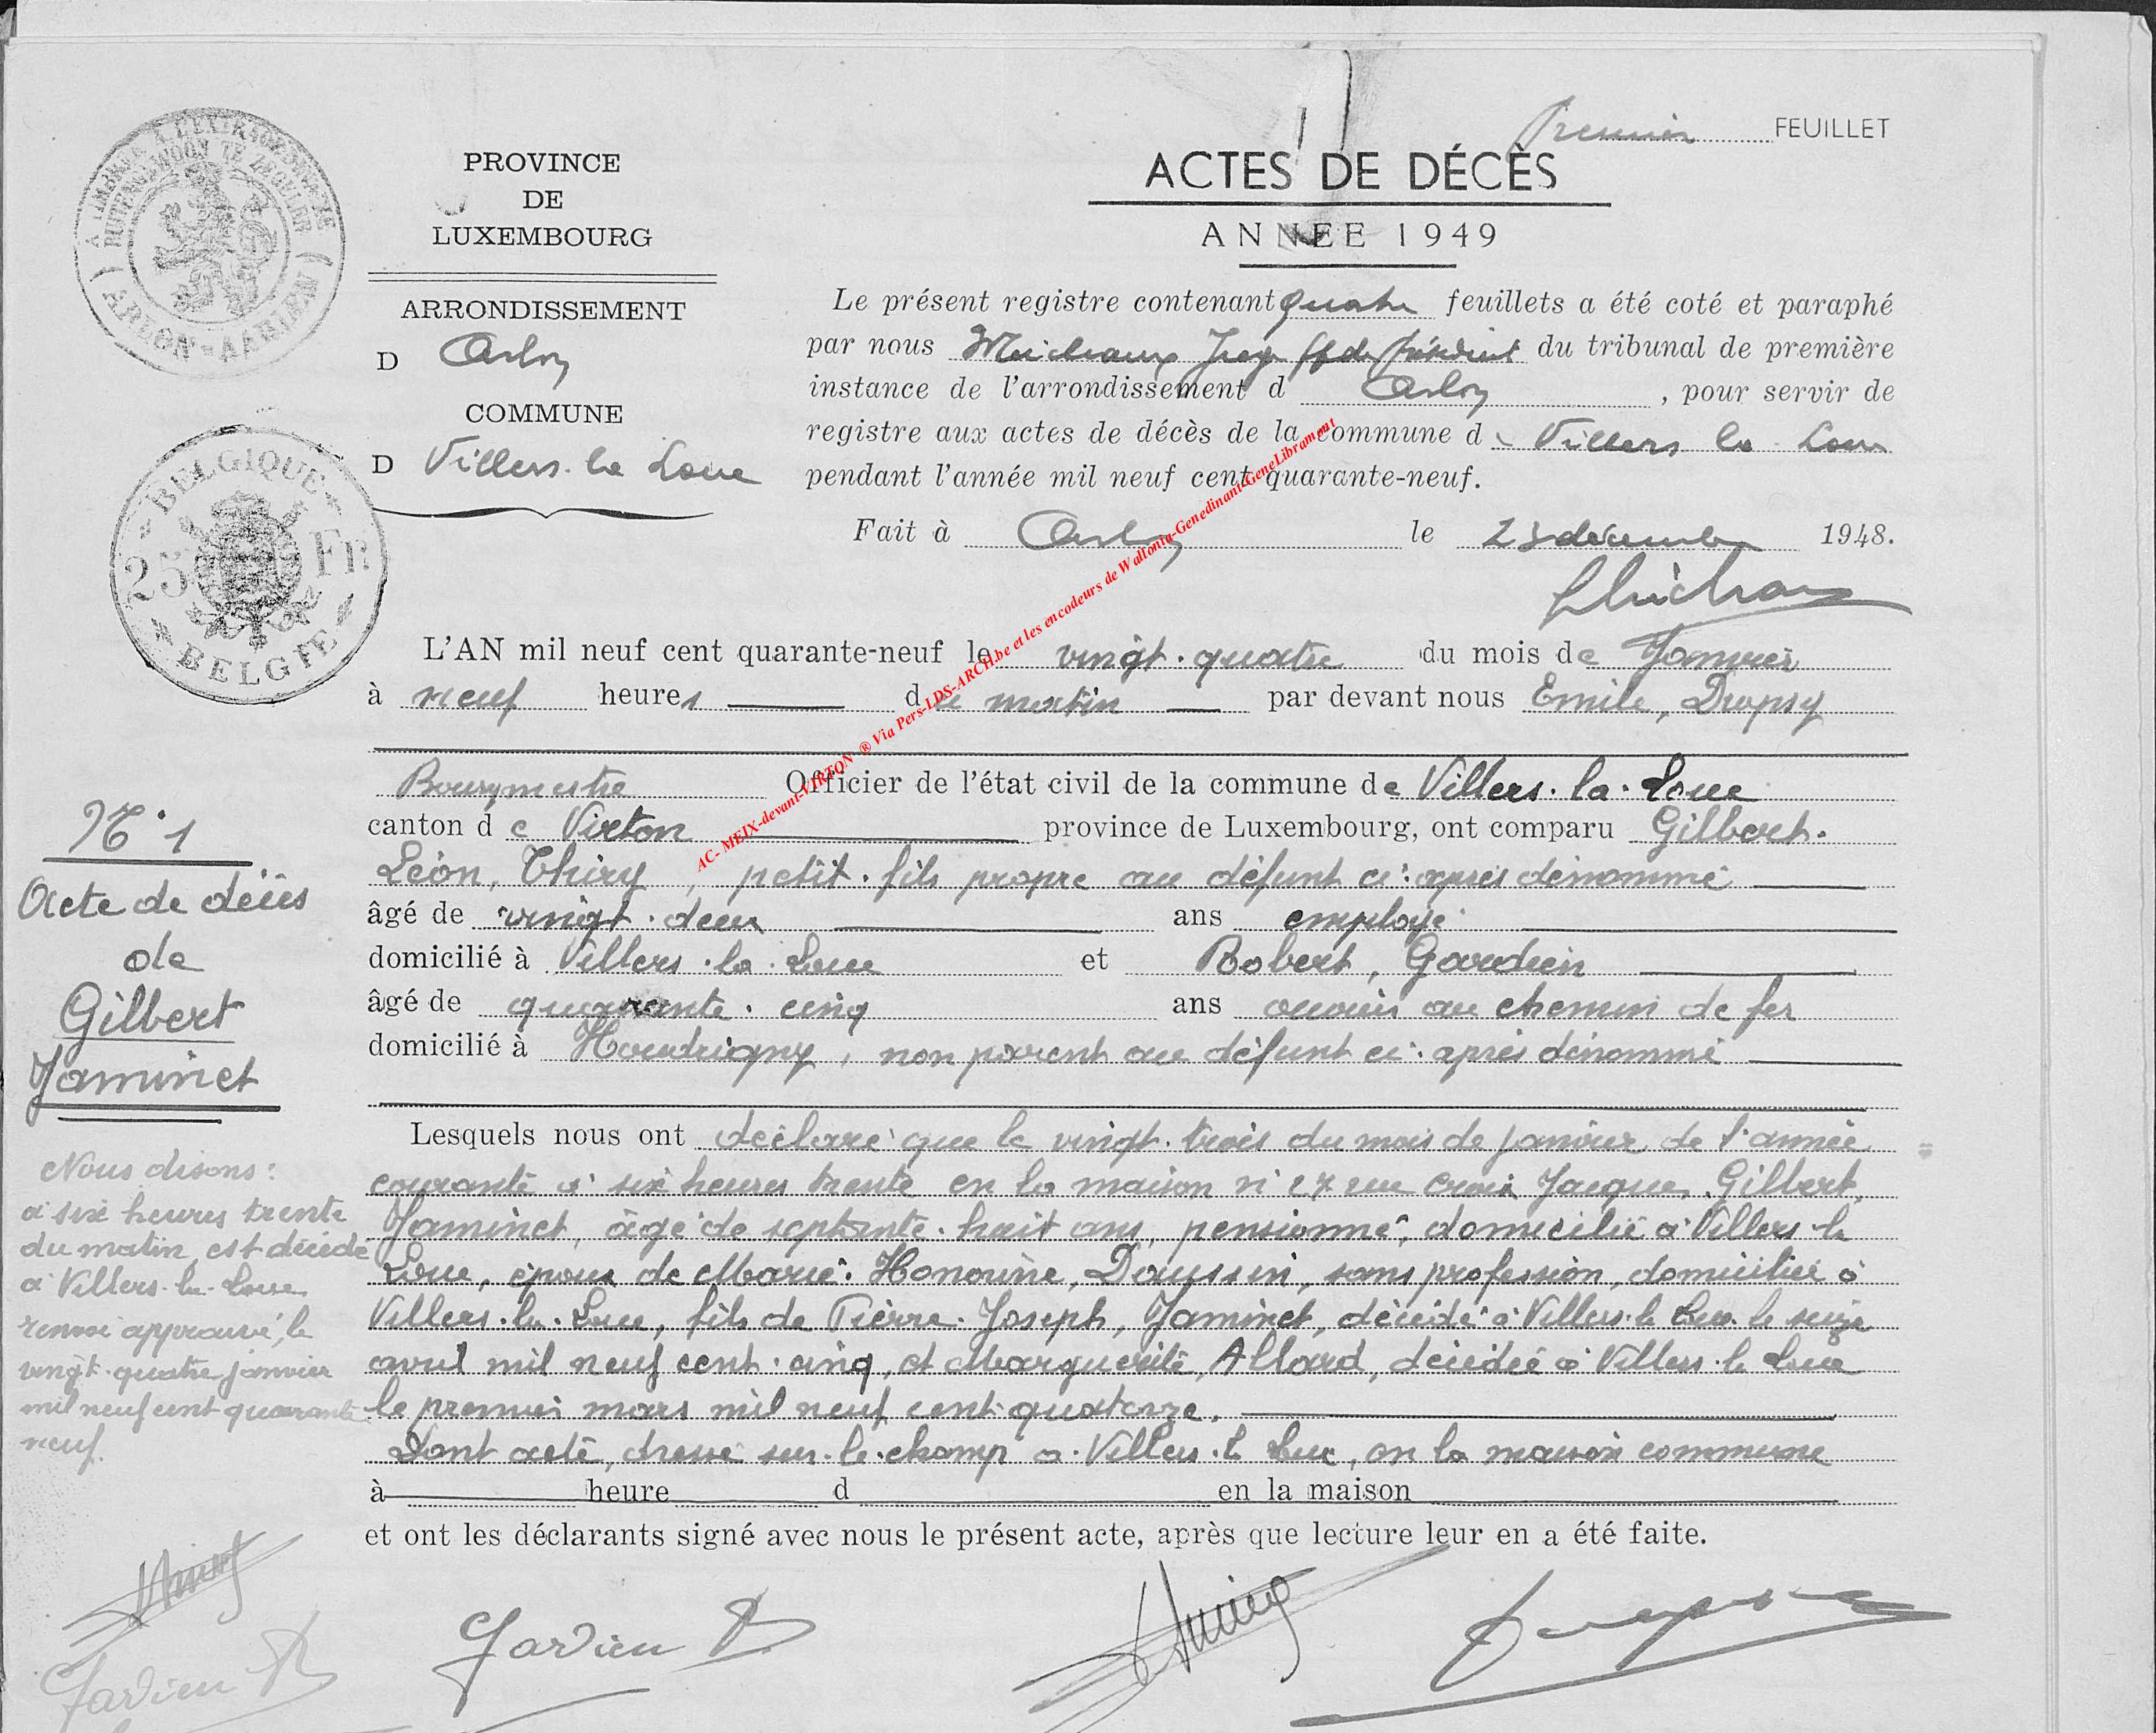 Premier FEUILLET
PROVINCE
DE
LUXEMBOURG
ARRONDISSEMENT
D Arlon
COMMUNE
D Villers-la-Loue
ACTES DE DÉCÈS
ANNÉE 1949
Le présent registre contenant quatre feuillets a été coté et paraphé
par nous Michaux Juge ff de Président du tribunal de première
instance de l'arrondissement d Arlon, pour servir de
registre aux actes de décès de la commune de Villers la Loue
pendant l'année mil neuf cent quarante-neuf.
Fait à Arlon le 23 décembre 1948.
BELGIQUE
25 FR
BELGIE
ARLON-AARLEN
AC- MEIX-devant-VIRTON ® Via Pers-LDS-ARCH.be et les encodeurs de Wallonia-Genedinant-GeneLibramont
L'AN mil neuf cent quarante-neuf le vingt-quatre du mois de Janvier
à neuf heures du matin par devant nous Emile, Dropsy
Bourgmestre Officier de l'état civil de la commune de Villers-la-Loue
canton de Virton province de Luxembourg, ont comparu Gilbert-
Léon, Thiry, petit-fils propre au défunt ci-après dénommé
âgé de vingt-deux ans employé
domicilié à Villers-la-Loue et Robert, Gardien
âgé de quarante-cinq ans ouvrier au chemin de fer
domicilié à Houdrigny, non parent au défunt ci-après dénommé
Lesquels nous ont déclaré que le vingt-trois du mois de janvier de l'année
courante à six heures trente en la maison n° 27 rue Croix Jacques, Gilbert,
Jaminet, âgé de septante-huit ans, pensionné, domicilié à Villers-la
Loue, époux de Marie-Honorine, Daussin, sans profession, domiciliée à
Villers-la-Loue, fils de Pierre-Joseph, Jaminet, décédé à Villers-la-Loue le seize
avril mil neuf cent-cinq, et Marguerite, Allard, décédée à Villers-la-Loue
le premier mars mil neuf cent-quatorze.
Dont acte, dressé sur-le-champ à Villers-la-Loue, en la maison commune
à heure d en la maison
et ont les déclarants signé avec nous le présent acte, après que lecture leur en a été faite.
Gardien R
N° 1
Acte de décès
de
Gilbert
Jaminet
Nous disons :
à six heures trente
du matin, est décédé
à Villers-la-Loue
renvoi approuvé, le
vingt-quatre janvier
mil neuf cent quarante
neuf.
Gardien R